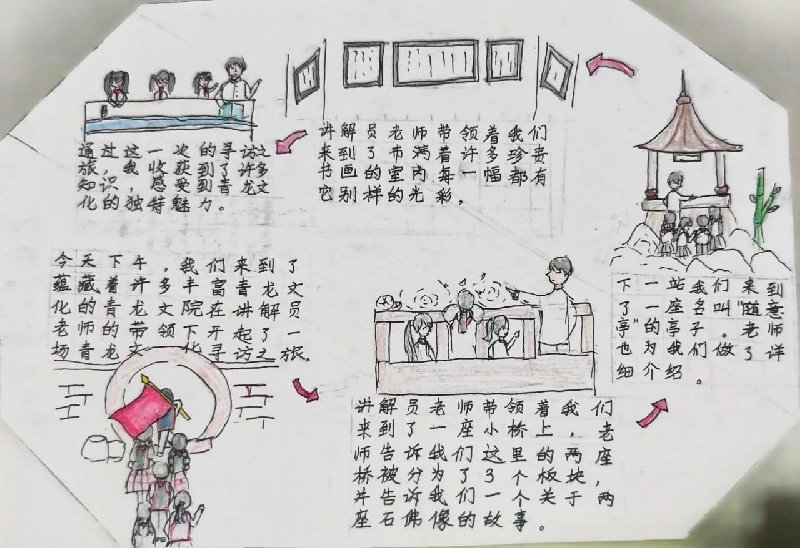 今天下午，我们来到了
蕴藏着许多丰富青龙文
化的青龙文院在讲解员
老师的带领下开起了一
场青龙文化寻访之旅。
讲解员老师带领着我们
来到了一座小桥上，老
师告诉我们这里的两座
桥被分为了3个板块，
并告诉我们一个关于两
座石佛像的故事。
下一站我们来到
了一座名叫“随意
亭”的亭子。老师
也为我们做了详
细的介绍。
讲解员老师带领着我们
来到了布满许多珍贵
书画的室内，每一幅都有
它别样的光彩。
通过这一次的寻访之
旅，我收获到了许多
知识，感受到青龙文
化的独特魅力。